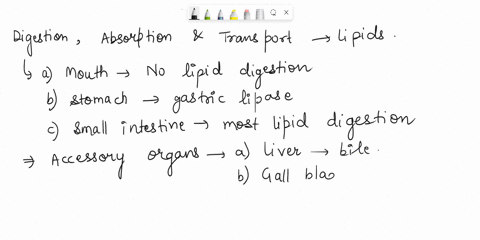 Digestion, Absorption & Transport → Lipids.
↳ a) Mouth → No lipid digestion
b) stomach → gastric lipase
c) small intestine → most lipid digestion
⇒ Accessory organs → a) Liver → bile.
b) Gall blad